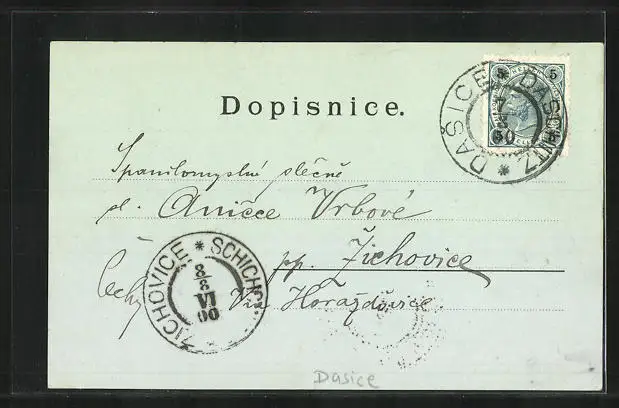 Dopisnice.
5 5
DAŠICE * DAŠITZ *
7
50
Spanilomyslné slečně
sl. Aničce Vrbové
pp. Žichovice
Čechy Via Horažďovice
ŽICHOVICE * SCHICHO
8
8
VI
00
Dasice